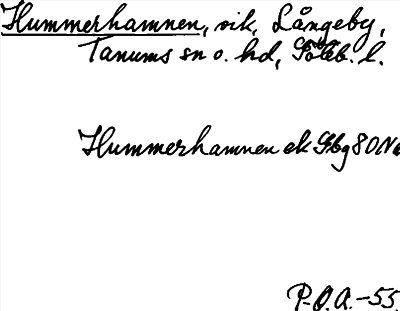 Hummerhamnen, vik, Långeby,
Tanums sn o. hd, Göteb. l.
Hummerhamnen ek Gbg 80 Nö
P.O.A.-55.